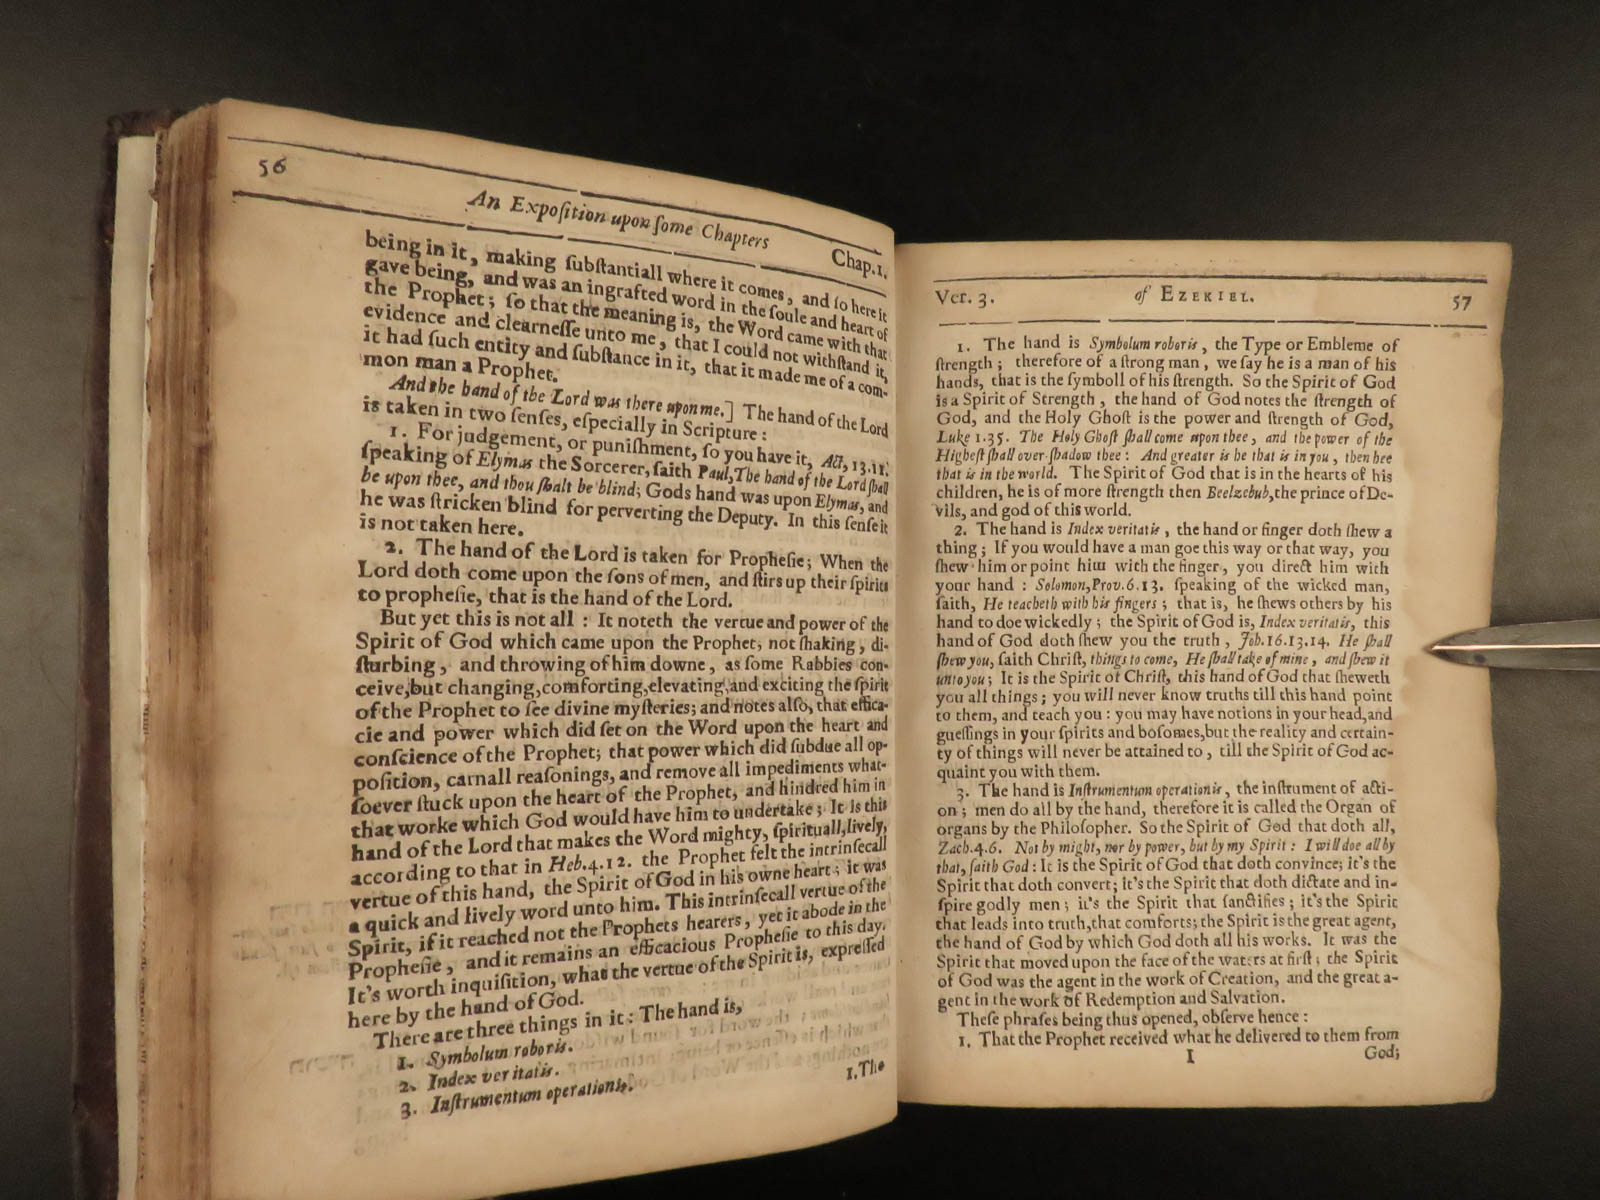 56
An Expoſition upon ſome Chapters
Chap.1.
being in it, making ſubſtantiall where it comes, and ſo here it
gave being, and was an ingrafted word in the ſoule and heart of
the Prophet; ſo that the meaning is, the Word came with that
evidence and clearneſſe unto me, that I could not withſtand it,
it had ſuch entity and ſubſtance in it, that it made me of a com-
mon man a Prophet.
And the hand of the Lord was there upon me.] The hand of the Lord
is taken in two ſenſes, eſpecially in Scripture:
1. For judgement, or puniſhment, ſo you have it, Act, 13.11.
ſpeaking of Elymas the Sorcerer, ſaith Paul, The hand of the Lord ſhall
be upon thee, and thou ſhalt be blind; Gods hand was upon Elymas, and
he was ſtricken blind for perverting the Deputy. In this ſenſe it
is not taken here.
2. The hand of the Lord is taken for Propheſie; When the
Lord doth come upon the ſons of men, and ſtirs up their ſpirits
to propheſie, that is the hand of the Lord.
But yet this is not all: It noteth the vertue and power of the
Spirit of God which came upon the Prophet, not ſhaking, di-
ſturbing, and throwing of him downe, as ſome Rabbies con-
ceive, but changing, comforting, elevating, and exciting the ſpirit
of the Prophet to ſee divine myſteries; and notes alſo, that effica-
cie and power which did ſet on the Word upon the heart and
conſcience of the Prophet; that power which did ſubdue all op-
poſition, carnall reaſonings, and remove all impediments what-
ſoever ſtuck upon the heart of the Prophet, and hindred him in
that worke which God would have him to undertake; It is this
hand of the Lord that makes the Word mighty, ſpirituall, lively,
according to that in Heb.4.12. the Prophet felt the intrinſecall
vertue of this hand, the Spirit of God in his owne heart; it was
a quick and lively word unto him. This intrinſecall vertue of the
Spirit, if it reached not the Prophets hearers, yet it abode in the
Propheſie, and it remains an efficacious Propheſie to this day.
It's worth inquiſition, what the vertue of the Spirit is, expreſſed
here by the hand of God.
There are three things in it: The hand is,
1. Symbolum roboris.
2. Index veritatis.
3. Inſtrumentum operationis.
1.The
Ver. 3.
of EZEKIEL.
57
1. The hand is Symbolum roboris, the Type or Embleme of
ſtrength; therefore of a ſtrong man, we ſay he is a man of his
hands, that is the ſymboll of his ſtrength. So the Spirit of God
is a Spirit of Strength, the hand of God notes the ſtrength of
God, and the Holy Ghoſt is the power and ſtrength of God,
Luke 1.35. The Holy Ghoſt ſhall come upon thee, and the power of the
Higheſt ſhall over-ſhadow thee: And greater is he that is in you, then hee
that is in the world. The Spirit of God that is in the hearts of his
children, he is of more ſtrength then Beelzebub, the prince of De-
vils, and god of this world.
2. The hand is Index veritatis, the hand or finger doth ſhew a
thing; If you would have a man goe this way or that way, you
ſhew him or point him with the finger, you direct him with
your hand: Solomon, Prov.6.13. ſpeaking of the wicked man,
ſaith, He teacheth with his fingers; that is, he ſhews others by his
hand to doe wickedly; the Spirit of God is, Index veritatis, this
hand of God doth ſhew you the truth, Joh.16.13.14. He ſhall
ſhew you, ſaith Chriſt, things to come, He ſhall take of mine, and ſhew it
unto you; It is the Spirit of Chriſt, this hand of God that ſheweth
you all things; you will never know truths till this hand point
to them, and teach you: you may have notions in your head, and
gueſſings in your ſpirits and boſomes, but the reality and certain-
ty of things will never be attained to, till the Spirit of God ac-
quaint you with them.
3. The hand is Inſtrumentum operationis, the inſtrument of acti-
on; men do all by the hand, therefore it is called the Organ of
organs by the Philoſopher. So the Spirit of God that doth all,
Zach.4.6. Not by might, nor by power, but by my Spirit: I will doe all by
that, ſaith God: It is the Spirit of God that doth convince; it's the
Spirit that doth convert; it's the Spirit that doth dictate and in-
ſpire godly men; it's the Spirit that ſanctifies; it's the Spirit
that leads into truth, that comforts; the Spirit is the great agent,
the hand of God by which God doth all his works. It was the
Spirit that moved upon the face of the waters at firſt; the Spirit
of God was the agent in the work of Creation, and the great a-
gent in the work of Redemption and Salvation.
Theſe phraſes being thus opened, obſerve hence:
1. That the Prophet received what he delivered to them from
I
God;